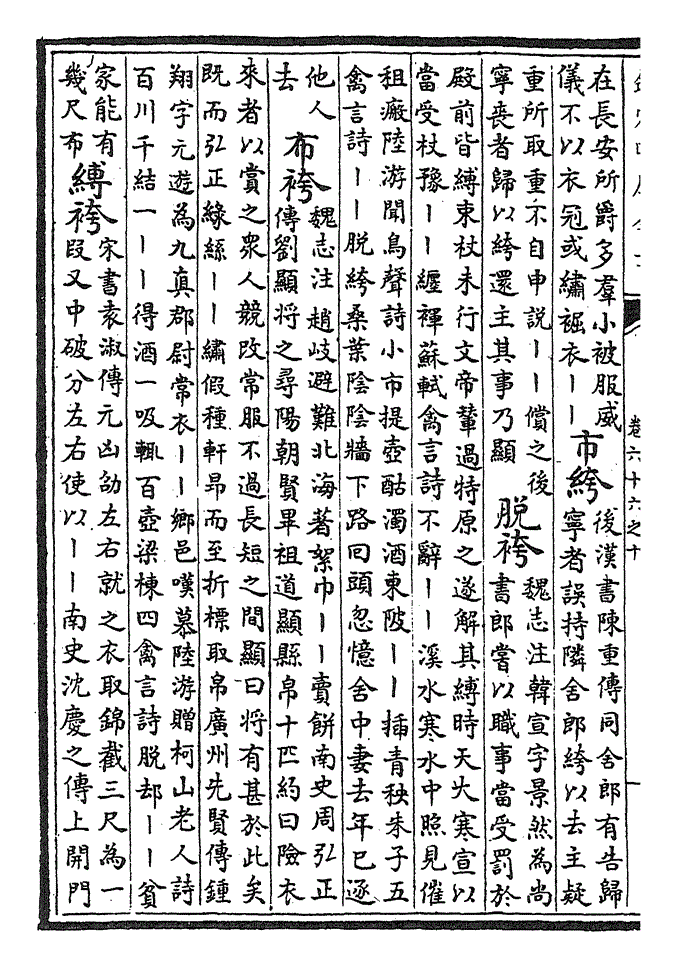 卷六十六之十
在長安所爵多羣小被服威
儀不以衣冠或繡裾衣丨丨
市絝
後漢書陳重傳同舍郎有告歸
寧者誤持隣舍郎絝以去主疑
重所取重不自申説丨丨償之後
寧喪者歸以絝還主其事乃顯
脱袴
魏志注韓宣字景然為尚
書郎嘗以職事當受罰於
殿前皆縛束杖未行文帝輦過特原之遂解其縛時天大寒宣以
當受杖豫丨丨纏褌蘇軾禽言詩不辭丨丨溪水寒水中照見催
租瘢陸游聞鳥聲詩小市提壺酤濁酒東陂丨丨插青秧朱子五
禽言詩丨丨脱絝桑葉陰陰牆下路回頭忽憶舍中妻去年已逐
他人
去
布袴
魏志注趙岐避難北海著絮巾丨丨賣餅南史周弘正
傳劉顯將之尋陽朝賢畢祖道顯縣帛十匹約曰險衣
來者以賞之衆人競改常服不過長短之間顯曰將有甚於此矣
既而弘正綠絲丨丨繡假種軒昂而至折標取帛廣州先賢傳鍾
翔字元遊為九真郡尉常衣丨丨鄉邑嘆慕陸游贈柯山老人詩
百川千結一丨丨得酒一吸輙百壺梁棟四禽言詩脱却丨丨貧
家能有
幾尺布
縛袴
宋書袁淑傳元凶劭左右就之衣取錦截三尺為一
段又中破分左右使以丨丨南史沈慶之傳上開門